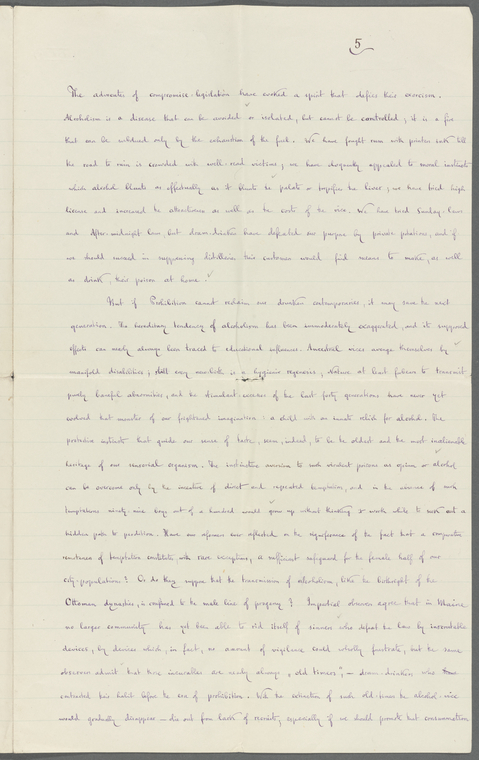 5
The advocates of compromise-legislation have evoked a spirit that defies their exorcism.
Alcoholism is a disease that can be avoided or isolated, but cannot be controlled; it is a fire
that can be subdued only by the exhaustion of the fuel. We have fought rum with printers ink till
the road to ruin is crowded with well-read victims; we have eloquently appealed to moral instincts
which alcohol blunts as effectually as it blunts the palate or torpifies the liver; we have tried high
license and increased the attractiveness as well as the costs of the vice. We have tried Sunday-laws
and After-midnight laws, but dram-drinkers have defeated our purpose by private potations, and if
we should succeed in suppressing distilleries their customers would find means to make, as well
as drink, their poison at home.
But if Prohibition cannot reclaim our drunken contemporaries, it may save the next
generation. The hereditary tendency of alcoholism has been immoderately exaggerated, and its supposed
effects can nearly always been traced to educational influences. Ancestral vices avenge themselves by
manifold disabilities; still every new-birth is a hygienic regenesis; Nature at least fails to transmit
purely baneful abnormities, and the drunkenest of the last forty generations have never yet
evolved that monster of our frightened imagination: a child with an innate relish for alcohol. The
protective instincts that guide our sense of taste, seem, indeed, to be the oldest and the most inalienable
heritage of our sensorial organism. The instinctive aversion to such virulent poisons as opium or alcohol
can be overcome only by the incentive of direct and repeated temptations, and in the absence of such
temptations ninety-nine boys out of a hundred would grow up without thinking it worth while to seek out a
hidden path to perdition. Have our opponents ever reflected on the significance of the fact that a comparative
remoteness of temptation constitutes, with rare exceptions, a sufficient safeguard for the female half of our
city-populations? Or do they suppose that the transmission of alcoholism, like the birthright of the
Ottoman dynasties, is confined to the male line of progeny? Impartial observers agree that in Maine
no larger community has yet been able to rid itself of sinners who defeat the law by inscrutable
devices, by devices which, in fact, no amount of vigilance could wholly frustrate, but the same
observers admit that those incurables are nearly always "old timers", — dram-drinkers who
contracted their habit before the era of prohibition. With the extinction of such old-timers the alcohol-vice
would gradually disappear — die out from lack of recruits, especially if we should promote that consummation